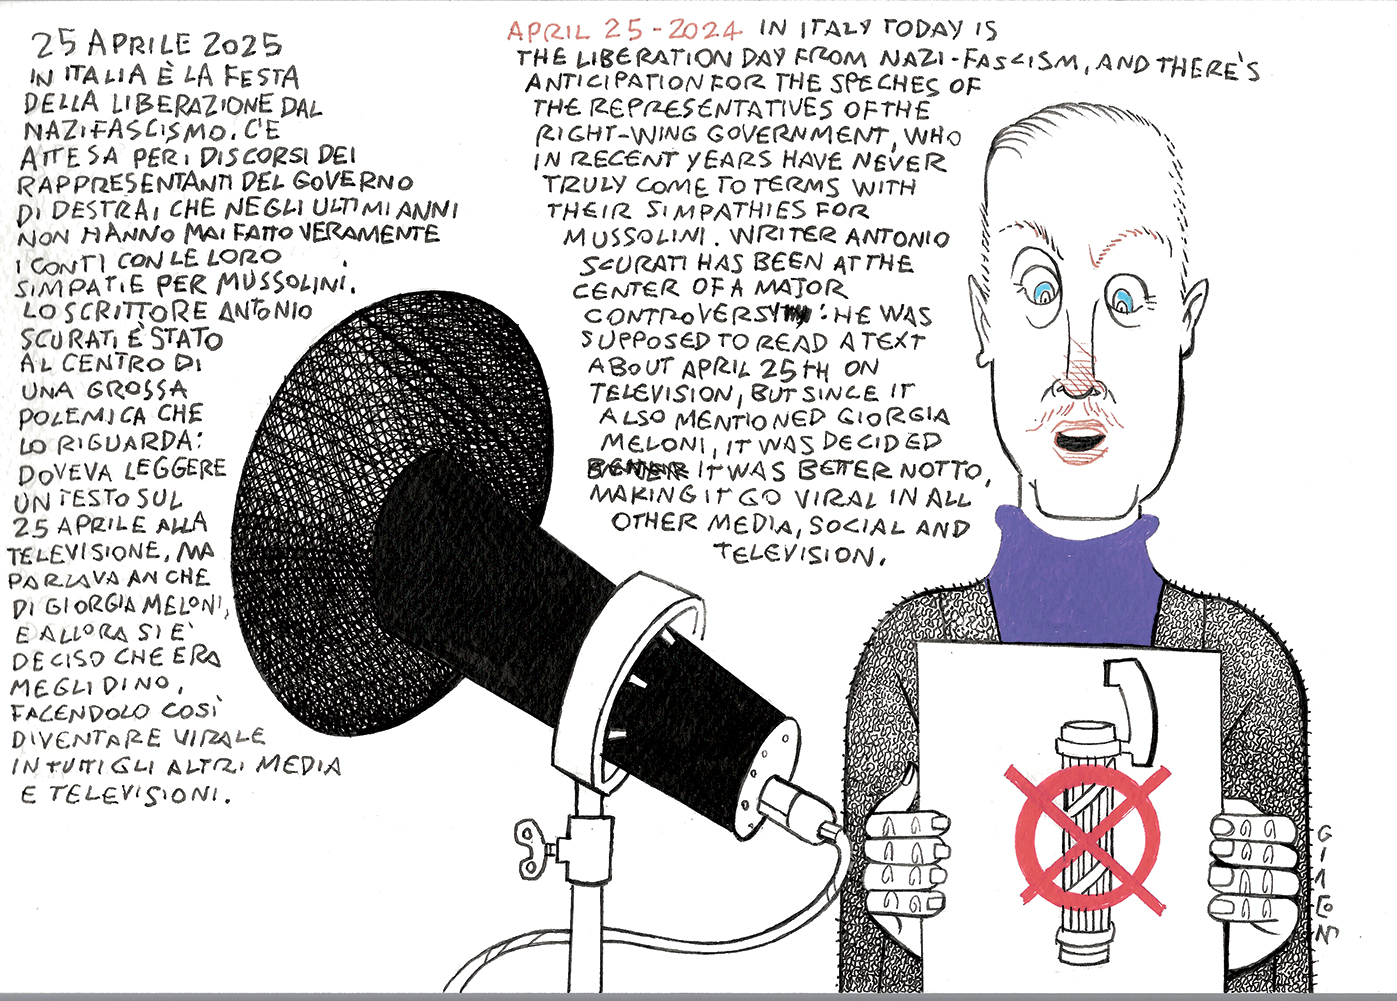 25 APRILE 2025
IN ITALIA È LA FESTA
DELLA LIBERAZIONE DAL
NAZIFASCISMO. C'E
ATTESA PER I DISCORSI DEI
RAPPRESENTANTI DEL GOVERNO
DI DESTRA, CHE NEGLI ULTIMI ANNI
NON HANNO MAI FATTO VERAMENTE
I CONTI CON LE LORO
SIMPATIE PER MUSSOLINI.
LO SCRITTORE ANTONIO
SCURATI È STATO
AL CENTRO DI
UNA GROSSA
POLEMICA CHE
LO RIGUARDA:
DOVEVA LEGGERE
UN TESTO SUL
25 APRILE ALLA
TELEVISIONE, MA
PARLAVA ANCHE
DI GIORGIA MELONI,
E ALLORA SI E'
DECISO CHE ERA
MEGLI DI NO,
FACENDOLO COSÌ
DIVENTARE VIRALE
IN TUTTI GLI ALTRI MEDIA
E TELEVISIONI.
APRIL 25-2024 IN ITALY TODAY IS
THE LIBERATION DAY FROM NAZI-FASCISM, AND THERE'S
ANTICIPATION FOR THE SPECHES OF
THE REPRESENTATIVES OF THE
RIGHT-WING GOVERNMENT, WHO
IN RECENT YEARS HAVE NEVER
TRULY COME TO TERMS WITH
THEIR SIMPATHIES FOR
MUSSOLINI. WRITER ANTONIO
SCURATI HAS BEEN AT THE
CENTER OF A MAJOR
CONTROVERSY: HE WAS
SUPPOSED TO READ A TEXT
ABOUT APRIL 25TH ON
TELEVISION, BUT SINCE IT
ALSO MENTIONED GIORGIA
MELONI, IT WAS DECIDED
IT WAS BETTER NOT TO,
MAKING IT GO VIRAL IN ALL
OTHER MEDIA, SOCIAL AND
TELEVISION.